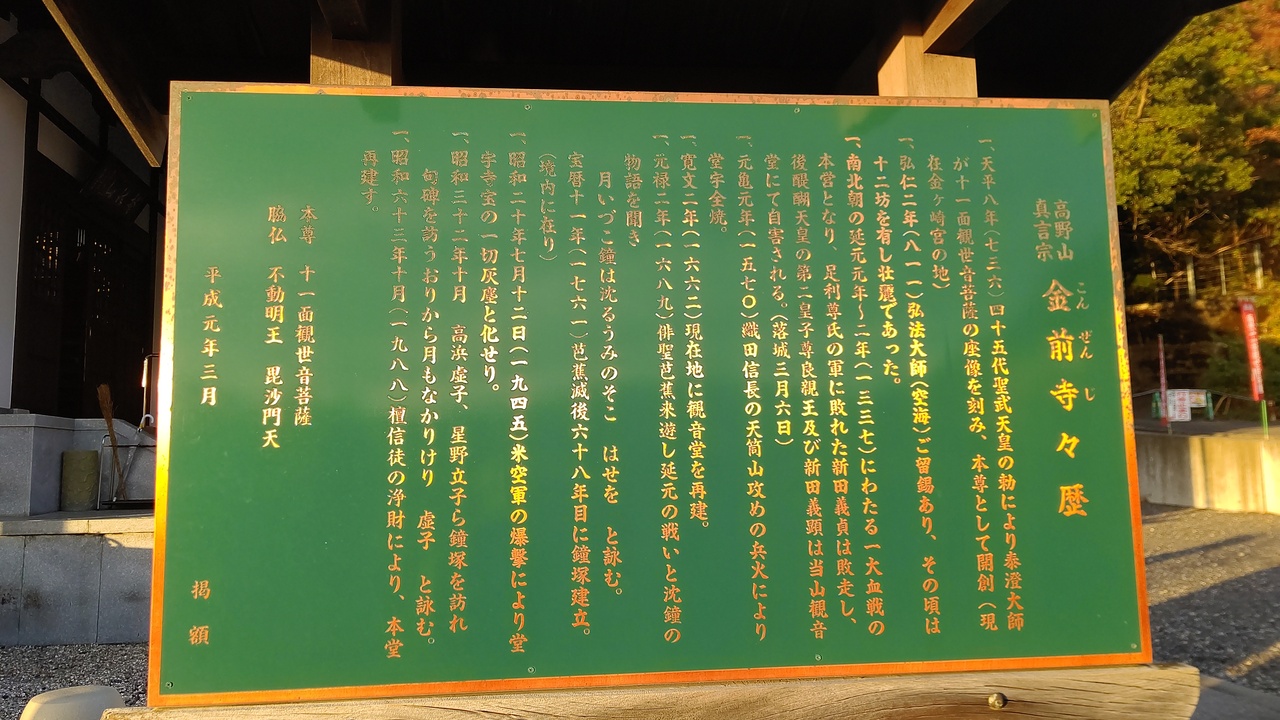 高野山
真言宗
金前寺々歴
こんぜんじ
一、天平八年(七三六)四十五代聖武天皇の勅により泰澄大師
が十一面観世音菩薩の座像を刻み、本尊として開創(現
在金ヶ崎宮の地)
一、弘仁二年(八一一)弘法大師(空海)ご留錫あり、その頃は
十二坊を有し壮麗であった。
一、南北朝の延元元年~二年(一三三七)にわたる一大血戦の
本営となり、足利尊氏の軍に敗れた新田義貞は敗走し、
後醍醐天皇の第二皇子尊良親王及び新田義顕は当山観音
堂にて自害される。(落城三月六日)
一、元亀元年(一五七〇)織田信長の天筒山攻めの兵火により
堂宇全焼。
一、寛文二年(一六六二)現在地に観音堂を再建。
一、元禄二年(一六八九)俳聖芭蕉来遊し延元の戦いと沈鐘の
物語を聞き
月いづこ鐘は沈るうみのそこ はせを と詠む。
宝暦十一年(一七六一)芭蕉滅後六十八年目に鐘塚建立。
(境内に在り)
一、昭和二十年七月十二日(一九四五)米空軍の爆撃により堂
宇寺宝の一切灰塵と化せり。
一、昭和三十二年十月 高浜虚子、星野立子ら鐘塚を訪れ
句碑を訪うおりから月もなかりけり 虚子 と詠む。
一、昭和六十三年十月(一九八八)檀信徒の浄財により、本堂
再建す。
本尊 十一面観世音菩薩
脇仏 不動明王 毘沙門天
平成元年三月
掲額